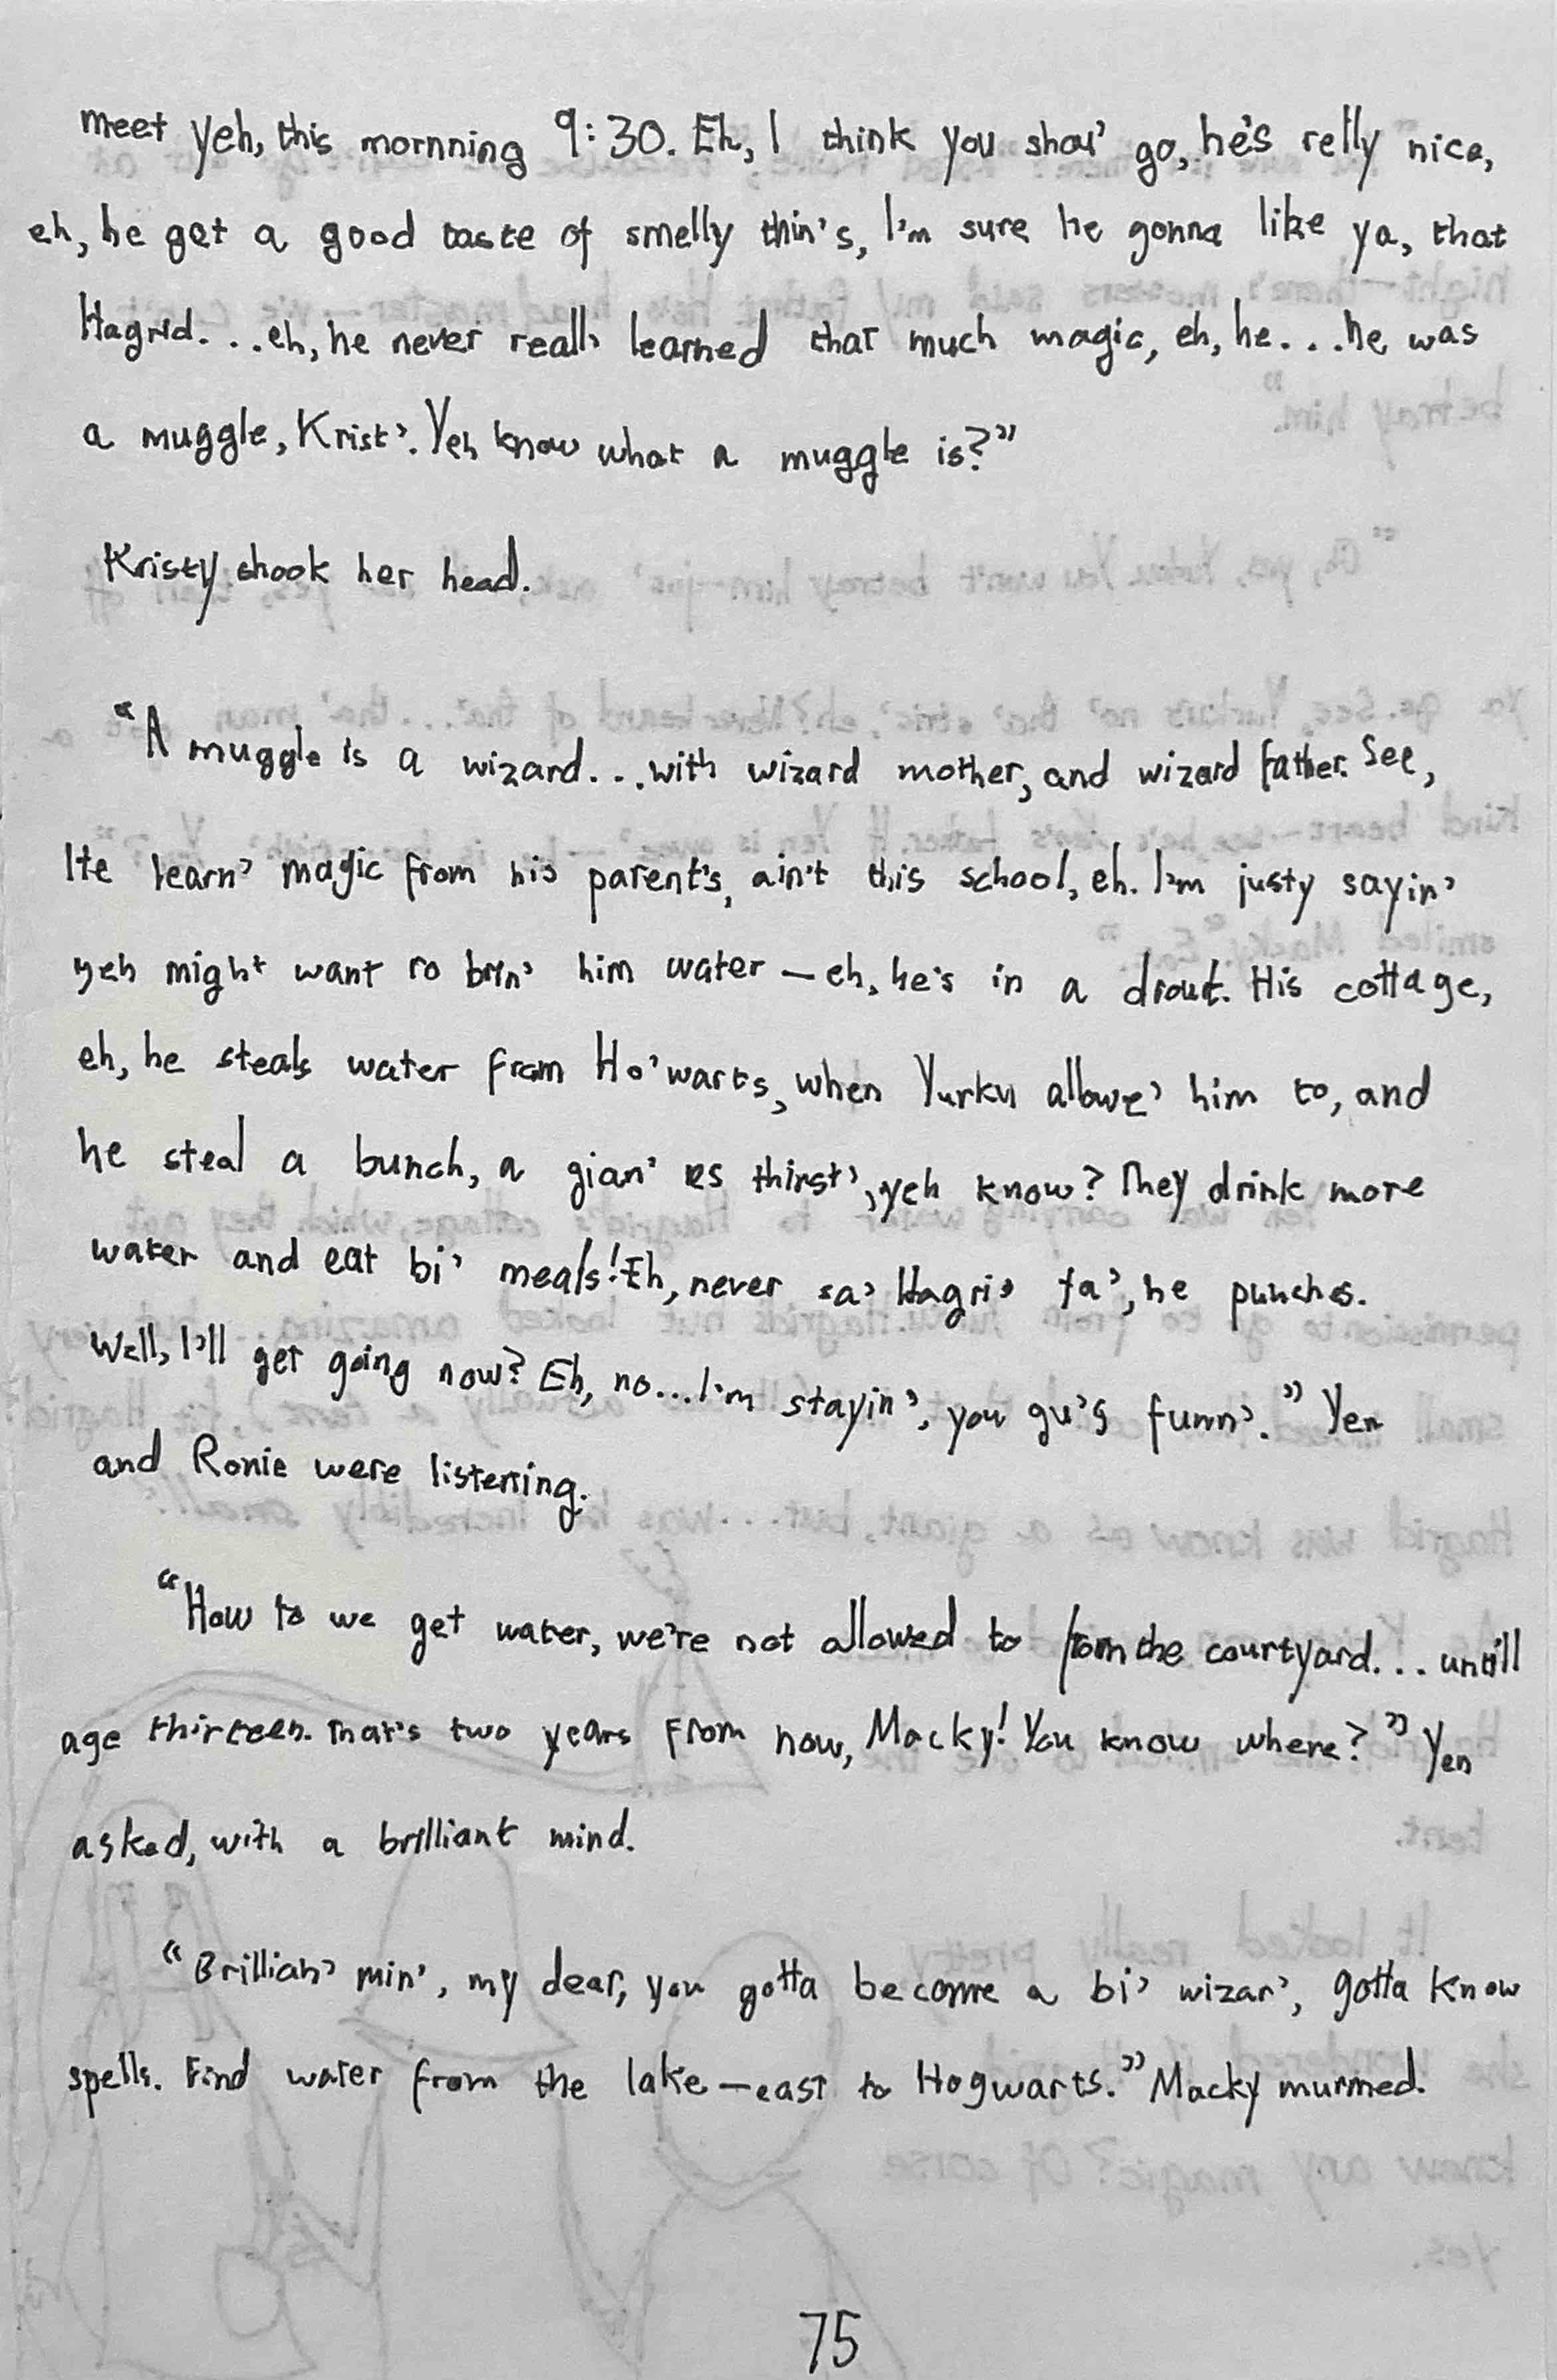 meet yeh, this mornning 9:30. Eh, I think you shou' go, he's relly nice,
eh, he get a good taste of smelly thin's, I'm sure he gonna like ya, that
Hagrid. . .eh, he never reall' learned that much magic, eh, he. . .he was
a muggle, Krist'. Yeh know what a muggle is?"
Kristy shook her head.
"A muggle is a wizard. . .with wizard mother, and wizard father. See,
He learn' magic from his parent's, ain't this school, eh. I'm justy sayin'
yeh might want to brin' him water — eh, he's in a drout. His cottage,
eh, he steals water from Ho'warts, when Yurku allowe' him to, and
he steal a bunch, a gian' es thirst', yeh know? They drink more
water and eat bi' meals! Eh, never sa' Hagri' fa', he punches.
Well, I'll get going now? Eh, no...I'm stayin', you gu's funn'." Yen
and Ronie were listening.
"How to we get water, we're not allowed to from the courtyard. . . untill
age thirteen. That's two years from now, Macky! You know where?" Yen
asked, with a brilliant mind.
"Brillian' min', my dear, you gotta become a bi' wizar', gotta know
spells. Find water from the lake — east to Hogwarts." Macky murmed.
75